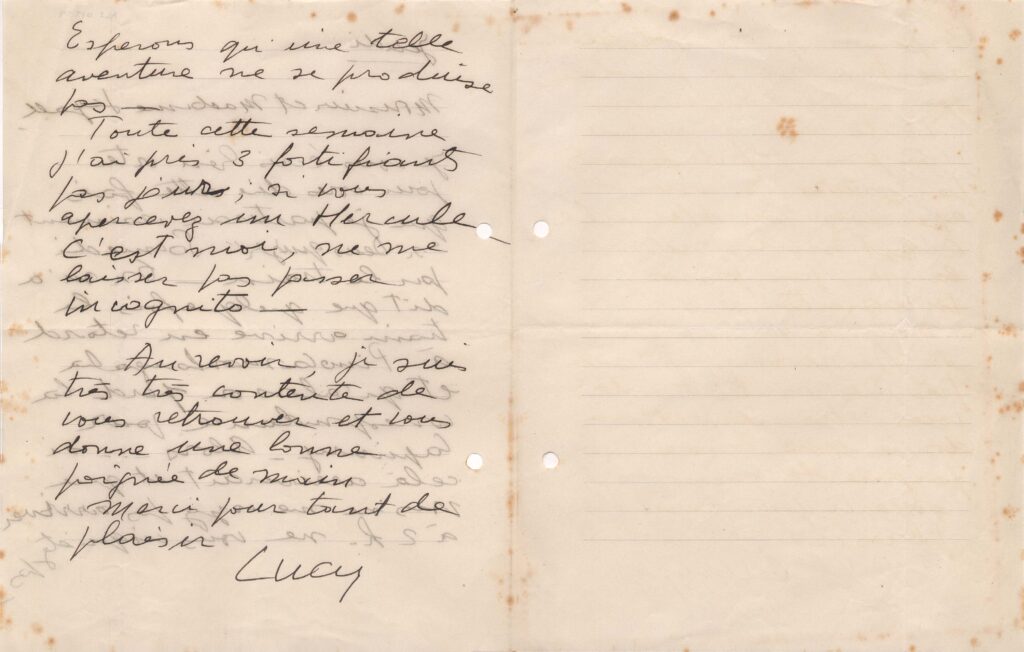 Esperons qu'une telle
aventure ne se produise
pas —
Toute cette semaine
j'ai pris 3 fortifiants
par jours, si vous
apercevez un Hercule
c'est moi, ne me
laisser pas passer
incognito —
Au revoir, je suis
très très contente de
vous retrouver et vous
donne une bonne
poignée de main
Merci pour tant de
plaisir
Lucy